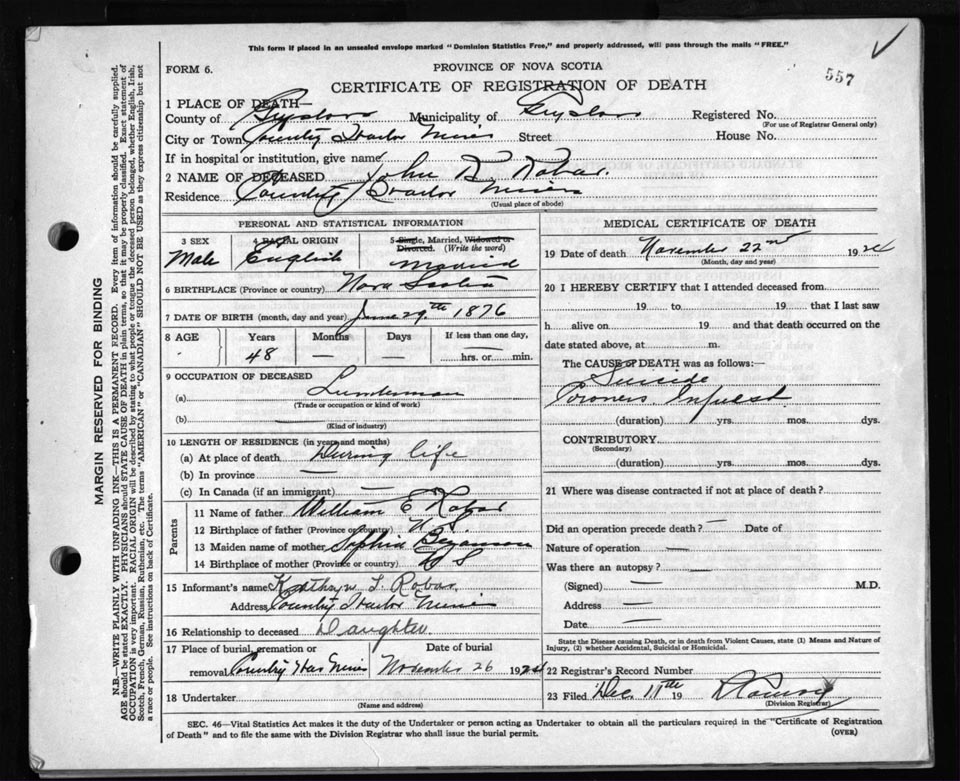 This form if placed in an unsealed envelope marked "Dominion Statistics Free," and properly addressed, will pass through the mails "FREE."
557
FORM 6.
PROVINCE OF NOVA SCOTIA
CERTIFICATE OF REGISTRATION OF DEATH
1 PLACE OF DEATH—
County of Guysboro Municipality of Guysboro Registered No.
(For use of Registrar General only)
City or Town Country Harbor Mines Street House No.
If in hospital or institution, give name
2 NAME OF DECEASED John B. Robar.
Residence Country Harbor Mines
(Usual place of abode)
PERSONAL AND STATISTICAL INFORMATION
3 SEX
Male
4 RACIAL ORIGIN
English
5 Single, Married, Widowed or
Divorced. (Write the word)
Married
6 BIRTHPLACE (Province or country) Nova Scotia
7 DATE OF BIRTH (month, day and year) June 29th 1876
8 AGE Years Months Days If less than one day,
48 — — hrs. or min.
9 OCCUPATION OF DECEASED
(a) Lumberman
(Trade or occupation or kind of work)
(b)
(Kind of industry)
10 LENGTH OF RESIDENCE (in years and months)
(a) At place of death During life
(b) In province —
(c) In Canada (if an immigrant) —
Parents
11 Name of father William E Robar
12 Birthplace of father (Province or country) N. S.
13 Maiden name of mother Sophia Bezanson
14 Birthplace of mother (Province or country) N S
15 Informant's name Kathryn L Robar.
Address Country Harbor Mines
16 Relationship to deceased Daughter.
17 Place of burial, cremation or Date of burial
removal Country Har Mines November 26 1924
18 Undertaker
(Name and address)
MEDICAL CERTIFICATE OF DEATH
19 Date of death November 22nd 1924
(Month, day and year)
20 I HEREBY CERTIFY that I attended deceased from
19 to 19 that I last saw
h alive on 19 and that death occurred on the
date stated above, at m.
The CAUSE OF DEATH was as follows:—
Suicide
Coroners Inquest
(duration) yrs. mos. dys.
CONTRIBUTORY
(Secondary)
(duration) yrs. mos. dys.
21 Where was disease contracted if not at place of death?
Did an operation precede death? — Date of
Nature of operation —
Was there an autopsy? —
(Signed) — M.D.
Address —
Date —
State the Disease causing Death, or in death from Violent Causes, state (1) Means and Nature of
Injury, (2) whether Accidental, Suicidal or Homicidal.
22 Registrar's Record Number
23 Filed Dec. 11th 19
(Division Registrar)
SEC. 46—Vital Statistics Act makes it the duty of the Undertaker or person acting as Undertaker to obtain all the particulars required in the "Certificate of Registration
of Death" and to file the same with the Division Registrar who shall issue the burial permit.
(OVER)
MARGIN RESERVED FOR BINDING
N.B.—WRITE PLAINLY WITH UNFADING INK—THIS IS A PERMANENT RECORD. Every item of information should be carefully supplied.
AGE should be stated EXACTLY. PHYSICIANS should STATE CAUSE OF DEATH in plain terms, so that it may be properly classified. Exact statement of
OCCUPATION is very important. RACIAL ORIGIN will be described by stating to what people or tongue the deceased person belonged, whether English, Irish,
Scotch, French, German, Russian, Ruthenian, etc. The terms "AMERICAN" or "CANADIAN" SHOULD NOT BE USED as they express citizenship but not
a race or people. See instructions on back of Certificate.